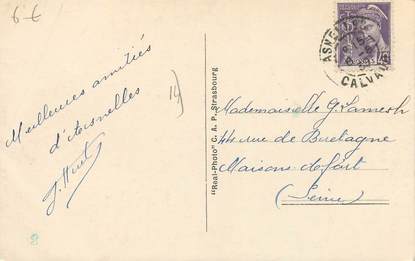 6 €
Meilleures amitiés
d'Asnelles
J. Huet
14
"Real-Photo" C. A. P. Strasbourg
ASNELLES
CALVADOS
Mademoiselle G. Lamesch
44 rue de Bretagne
Maisons Alfort
(Seine)
8